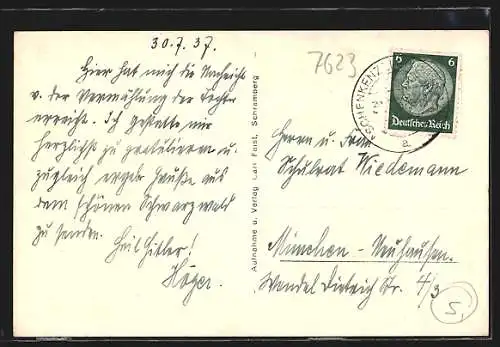 30.7.37.
7623
Hier hat mich die Nachricht
v. der Vermählung der Tochter
erreicht. Ich gestatte mir
herzlichst zu gratulieren u.
zugleich ergeb. Grüße aus
dem schönen Schwarzwald
zu senden.
Heil Hitler!
Höger.
Aufnahme u. Verlag Carl Faist, Schramberg
SCHENKENZ
a
6 6
Deutsches Reich
Herrn u. Frau
Schulrat Wiedemann
München-Neuhausen.
Wendel Dietrich Str. 4/3
S.